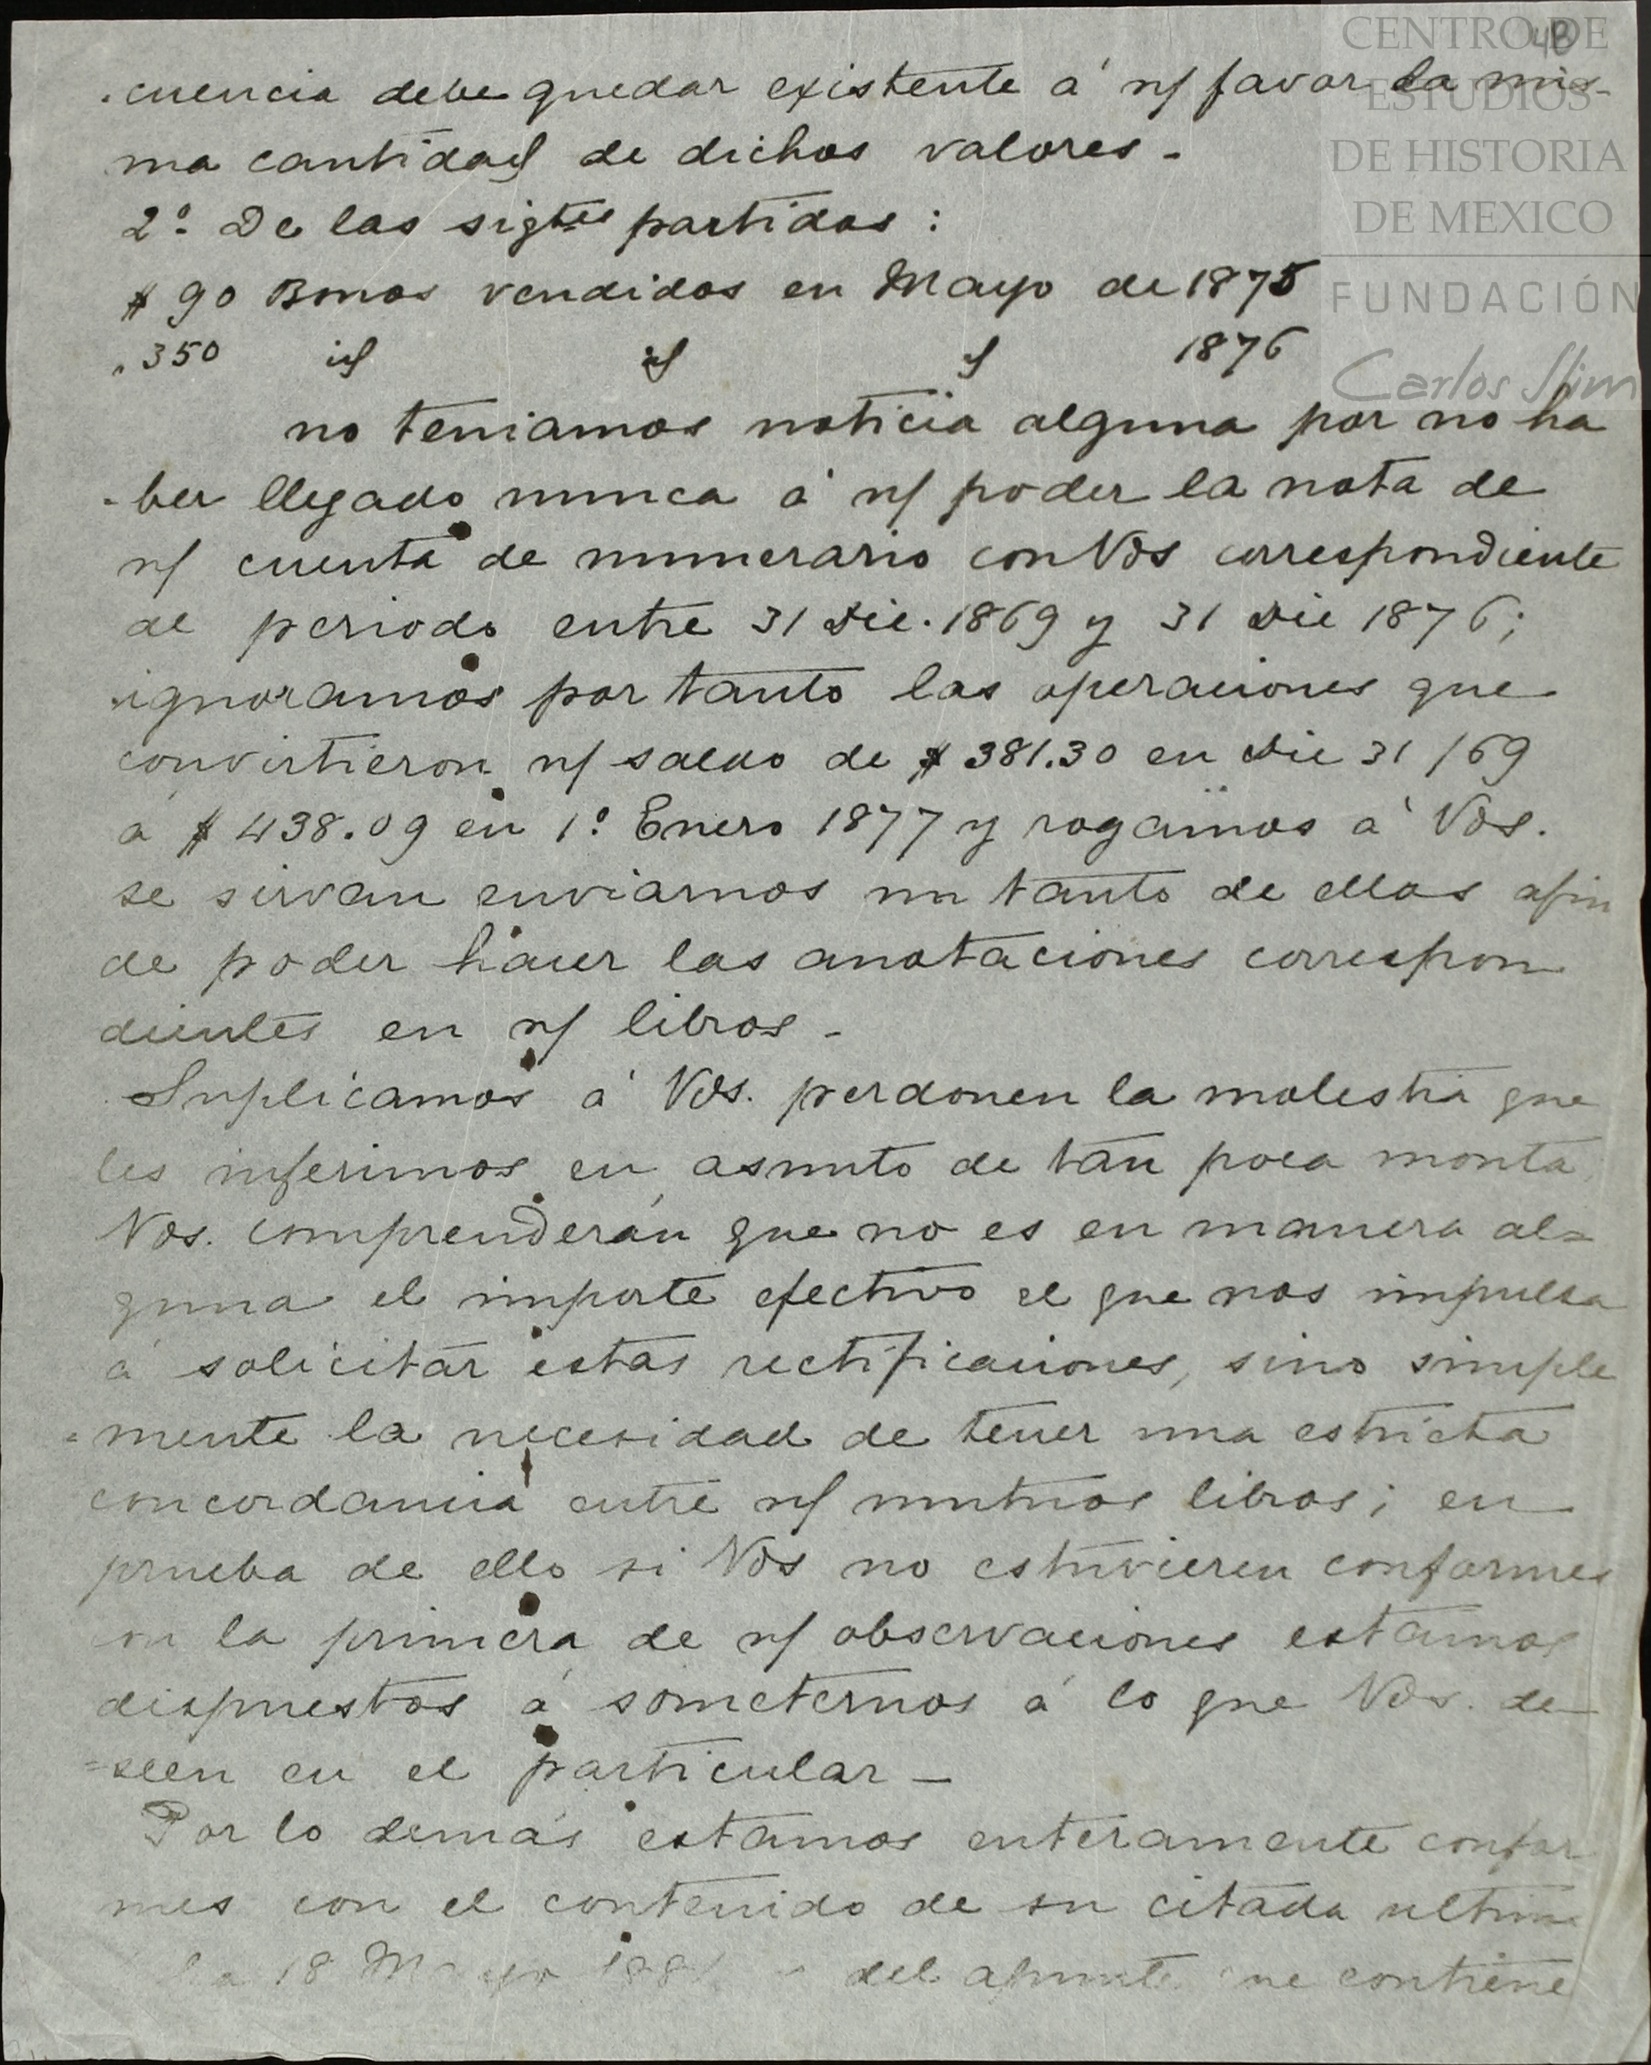 4B
CENTRO DE
ESTUDIOS
DE HISTORIA
DE MEXICO
FUNDACIÓN
Carlos Slim
-cuencia debe quedar existente á n/ favor la mis-
ma cantidad de dichos valores -
2º De las sigtes partidas :
$ 90 Bonos vendidos en Mayo de 1875
" 350 id id id 1876
no teniamos noticia alguna por no ha
-ber llegado nunca á n/ poder la nota de
n/ cuenta de numerario con Vds correspondiente
al periodo entre 31 Dic. 1869 y 31 Dic 1876;
ignoramos por tanto las operaciones que
convirtieron n/ saldo de $ 381.30 en Dic 31/69
a $ 438.09 en 1º Enero 1877 y rogamos á Vds.
se sirvan enviarnos un tanto de ellas afin
de poder hacer las anotaciones correspon
dientes en n/ libros -
Suplicamos á Vds. perdonen la molestia que
les inferimos en asunto de tan poca monta
Vds. comprenderán que no es en manera al=
guna el importe efectivo el que nos impulsa
á solicitar estas rectificaciones, sino simple
=mente la necesidad de tener una estricta
concordancia entre n/ mutuos libros; en
prueba de ello si Vds no estuvieren conformes
con la primera de n/ observaciones estamos
dispuestos á someternos á lo que Vds. de
=seen en el particular -
Por lo demás estamos enteramente confor
mes con el contenido de su citada ultima
18 Mayo del apunte que contiene